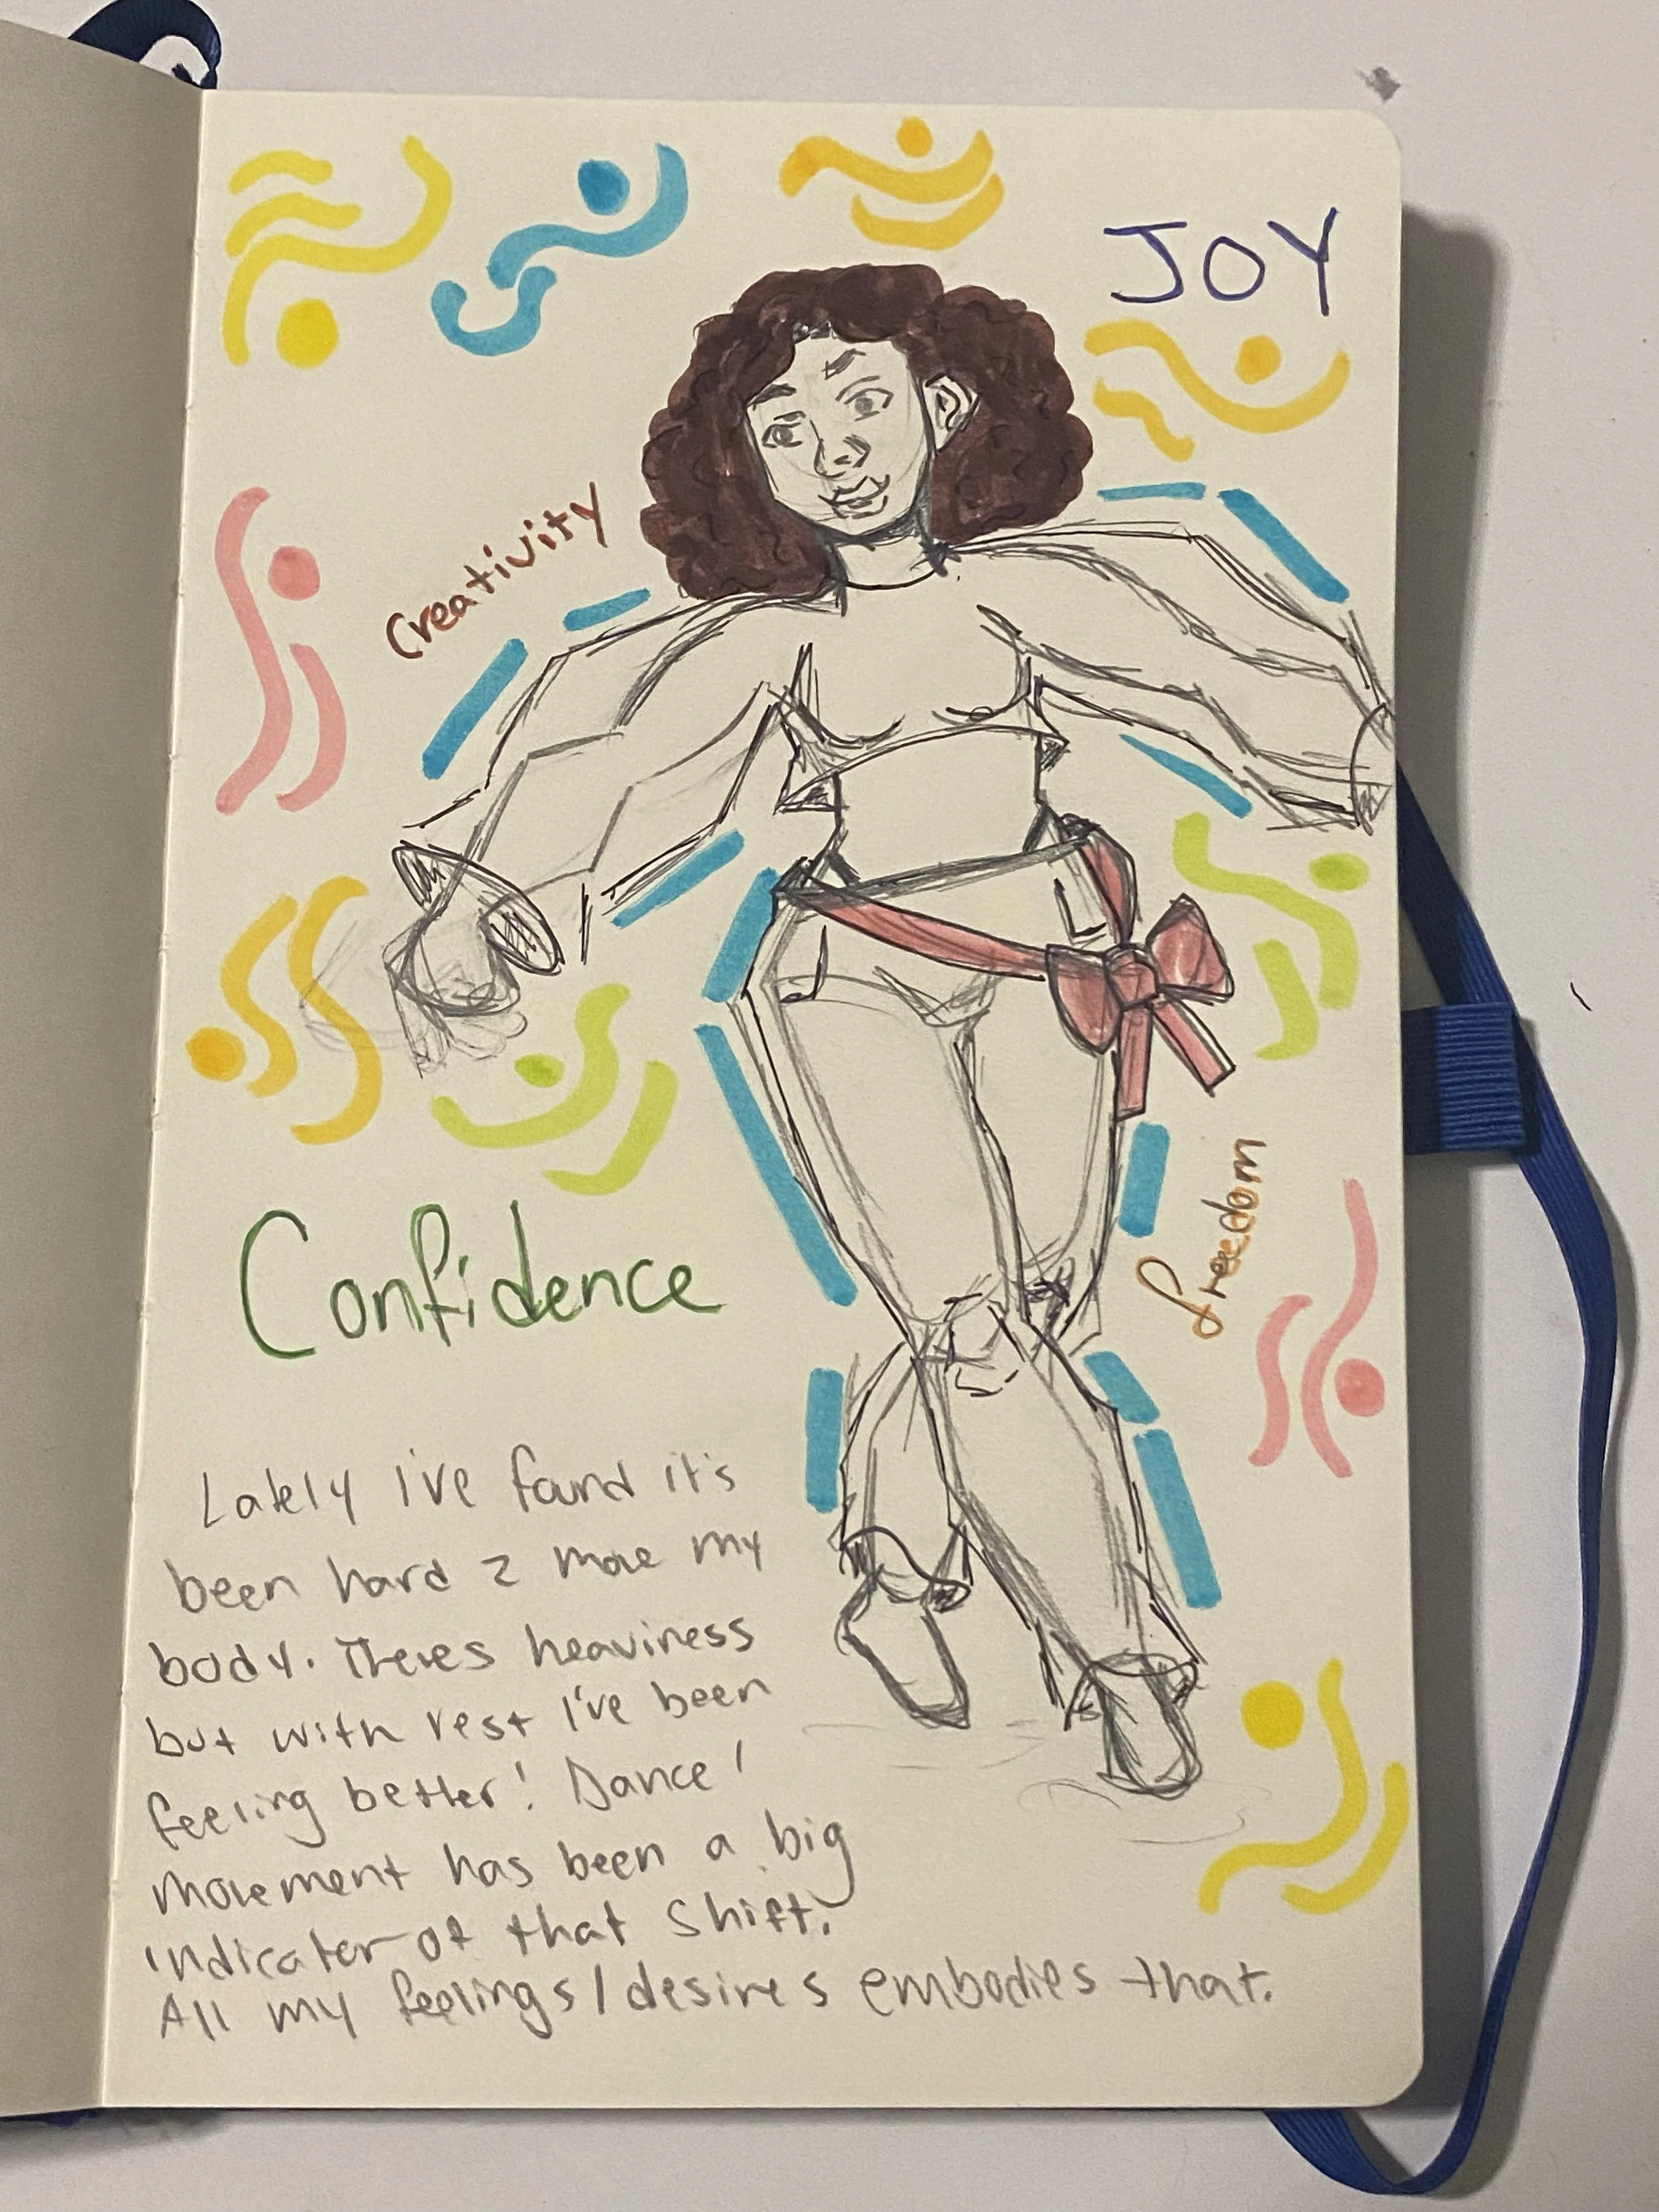 JOY
Creativity
Confidence
freedom
Lately I've found it's
been hard 2 move my
body. Theres heaviness
but with rest I've been
feeling better! Dance/
movement has been a big
indicater of that shift.
All my feelings/desires embodies that.